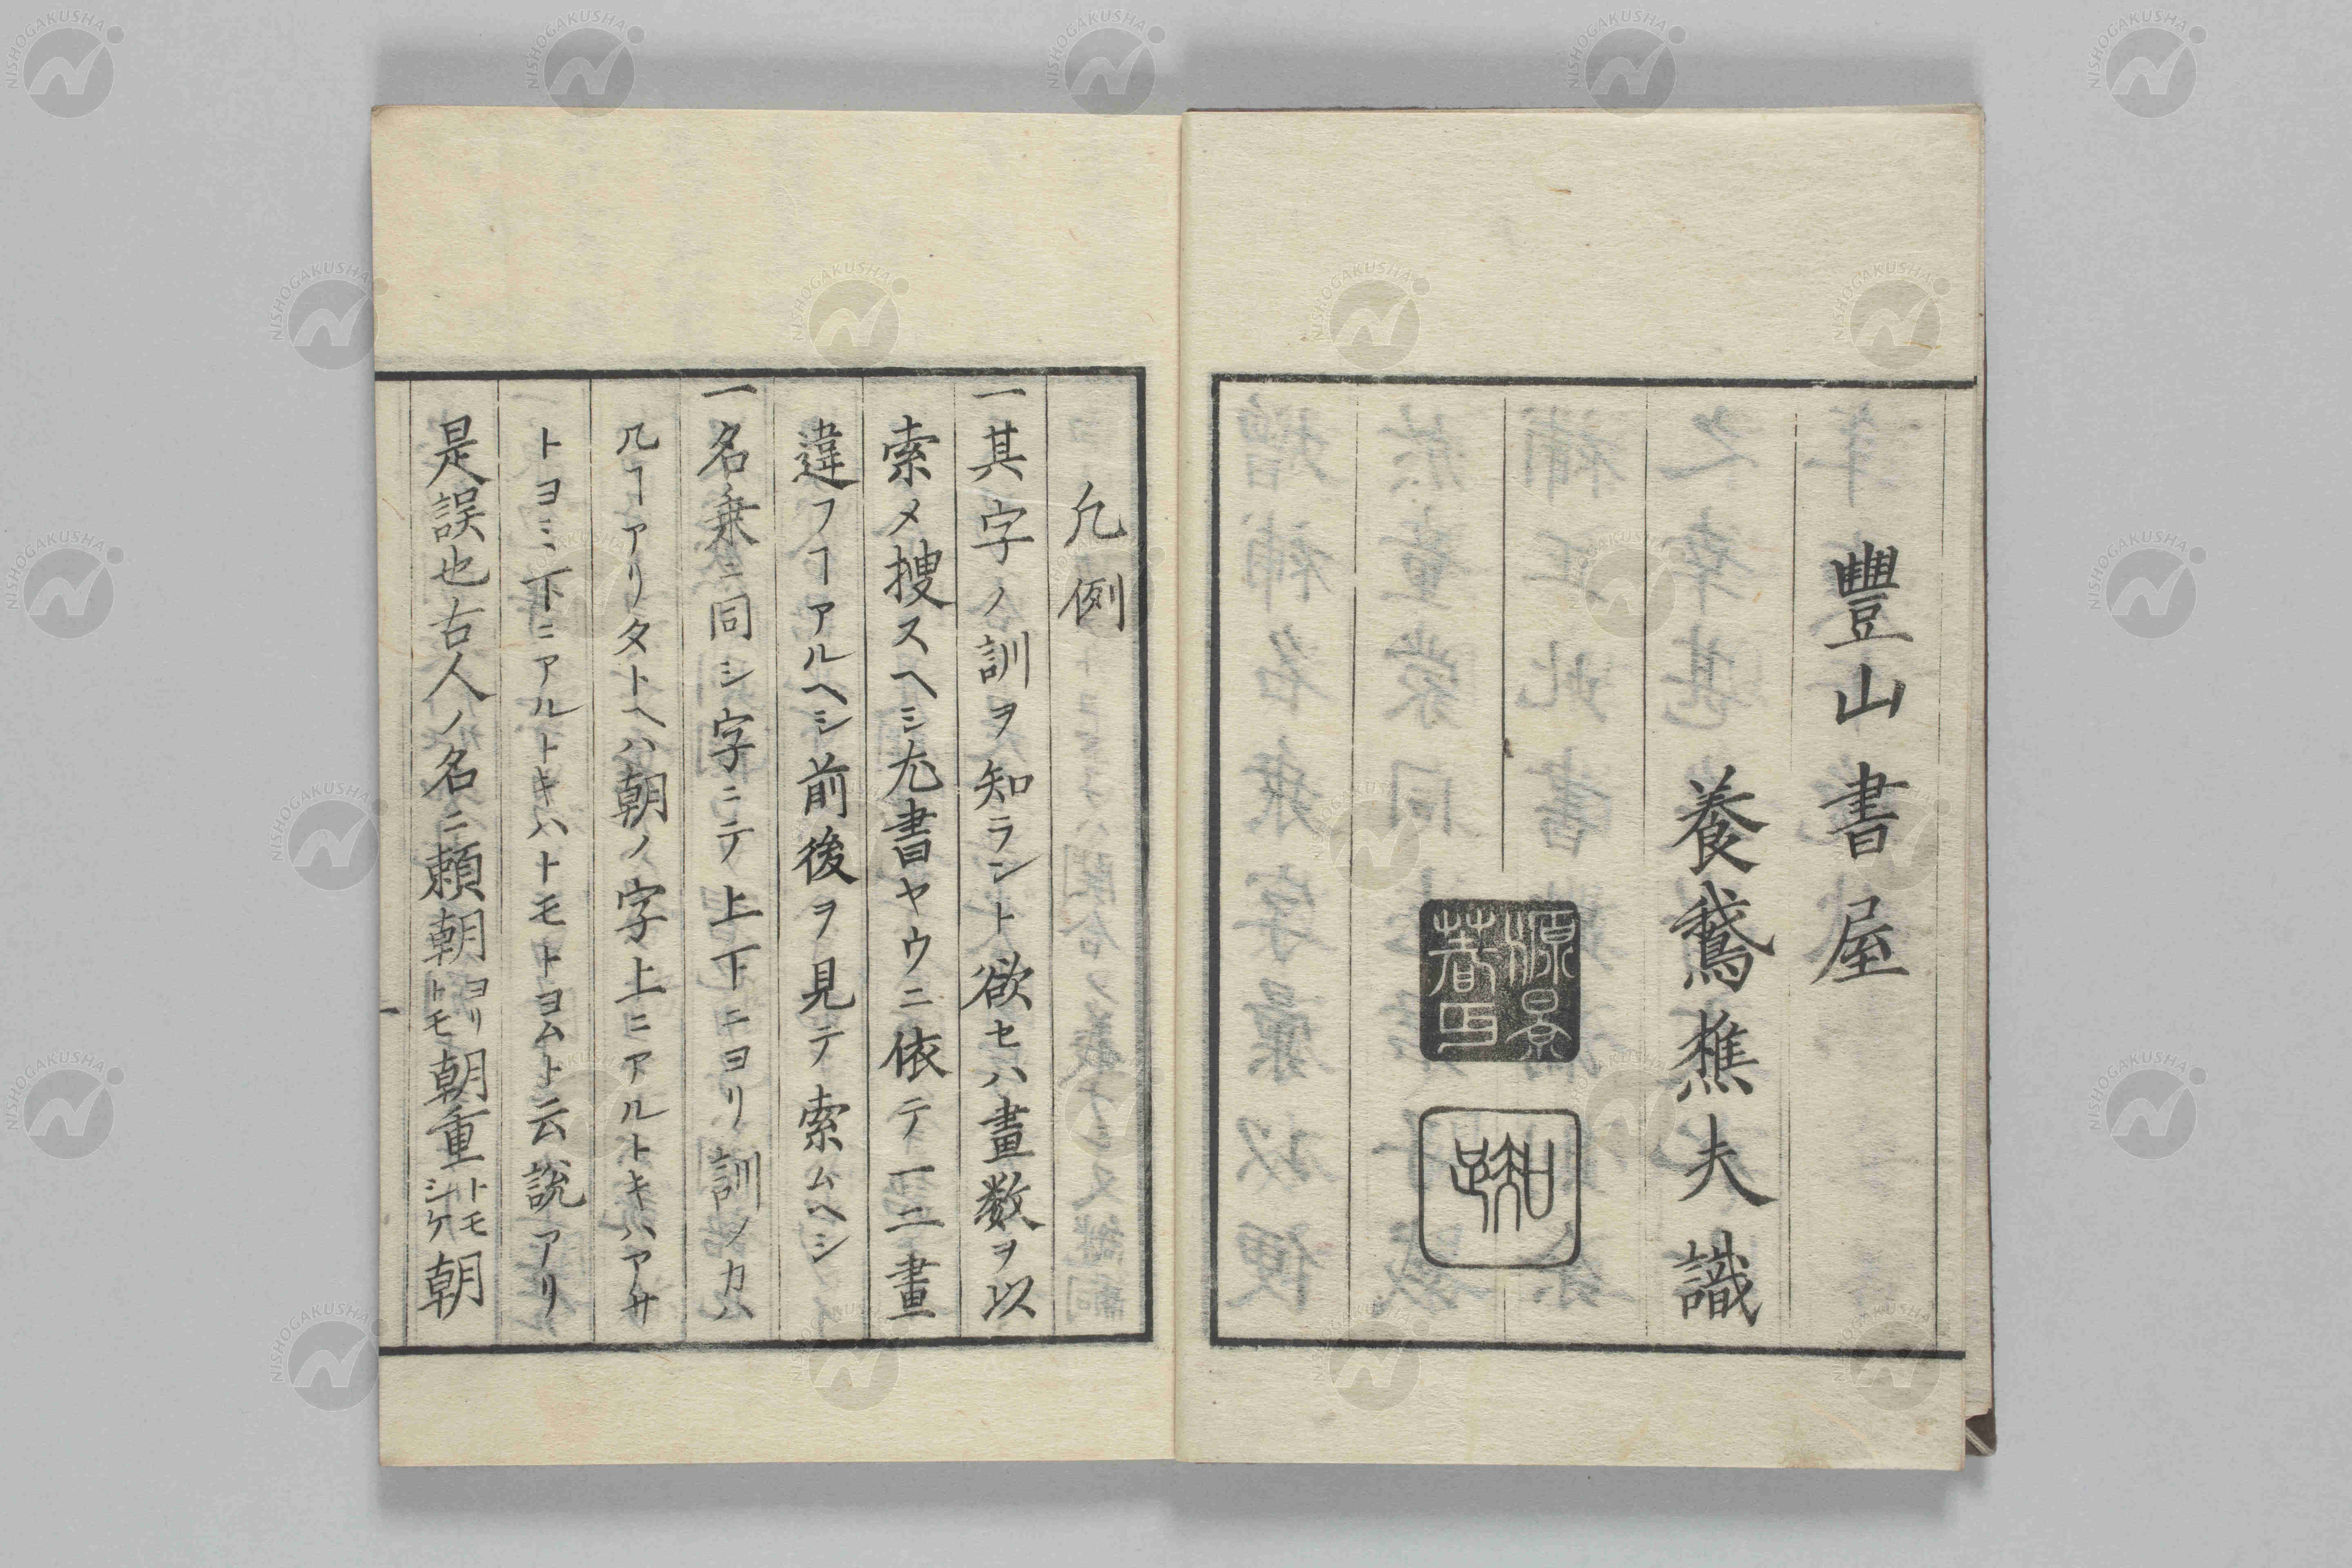 豐山書屋
養鵞樵夫識
凢例
一其字ノ訓ヲ知ラント欲セハ畫数ヲ以
索メ搜スヘシ尤書ヤウニ依テ一二畫
違フヿアルヘシ前後ヲ見テ索ムヘシ
一名乗ニ同シ字ニテ上下ニヨリ訓ノカハ
ルヿアリタトヘハ朝ノ字上ニアルトキハアサ
トヨミ下ニアルトキハトモトヨムト云説アリ
是誤也古人ノ名ニ頼朝ヨリトモ朝重トモシケ朝
NISHOGAKUSHA